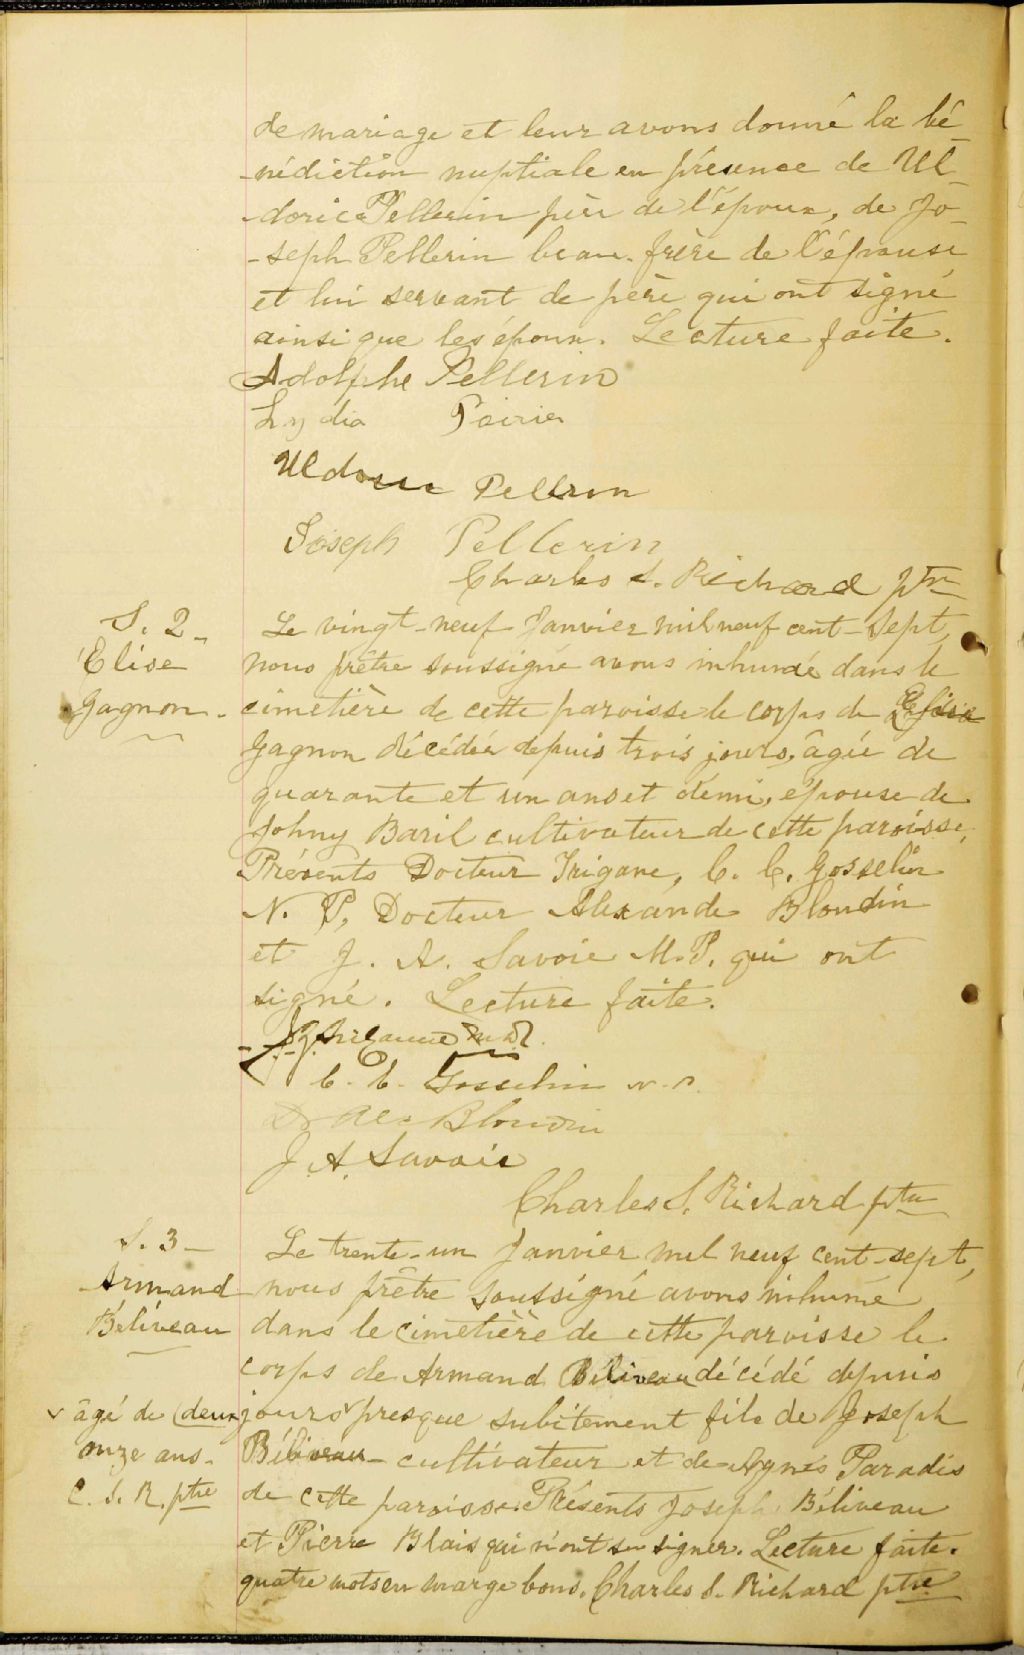 de mariage et leur avons donné la bé-
-nédiction nuptiale en présence de Ul-
-doric Pellerin père de l'époux, de Jo-
-seph Pellerin beau-frère de l'épouse
et lui servant de père qui ont signé
ainsi que les époux. Lecture faite.
Adolphe Pellerin
Lydia Poirier
Pellrin
Joseph Pellerin
Charles S. Richard ptre
S. 2-
Elise
Gagnon-
Le vingt-neuf Janvier mil neuf cent-sept,
nous prêtre soussigné avons inhumé dans le
cimetière de cette paroisse le corps de Elise
Gagnon décédée depuis trois jours, âgée de
quarante et un ans et demi, épouse de
Johny Baril cultivateur de cette paroisse,
Présents Docteur Trigane, C. C. Gosselin
N. P, Docteur Alexandre Blondin
et J. A. Savoie M.P. qui ont
signé. Lecture faite.
C. C. Gosselin N.P.
Dr Alex Blondin
J. A. Savoie
Charles S. Richard ptre
S. 3-
Armand
Béliveau
Le trente-un Janvier mil neuf cent-sept,
nous prêtre soussigné avons inhumé
dans le cimetière de cette paroisse le
corps de Armand Béliveau décédé depuis
v âgé de
onze ans-
C. S. R. ptre
(deux jours v presque subitement fils de Joseph
Béliveau cultivateur et de Agnés Paradis
de cette paroisse. Présents Joseph Béliveau
et Pierre Blais qui n'ont su signer. Lecture faite.
quatre mots en marge bons. Charles S. Richard ptre